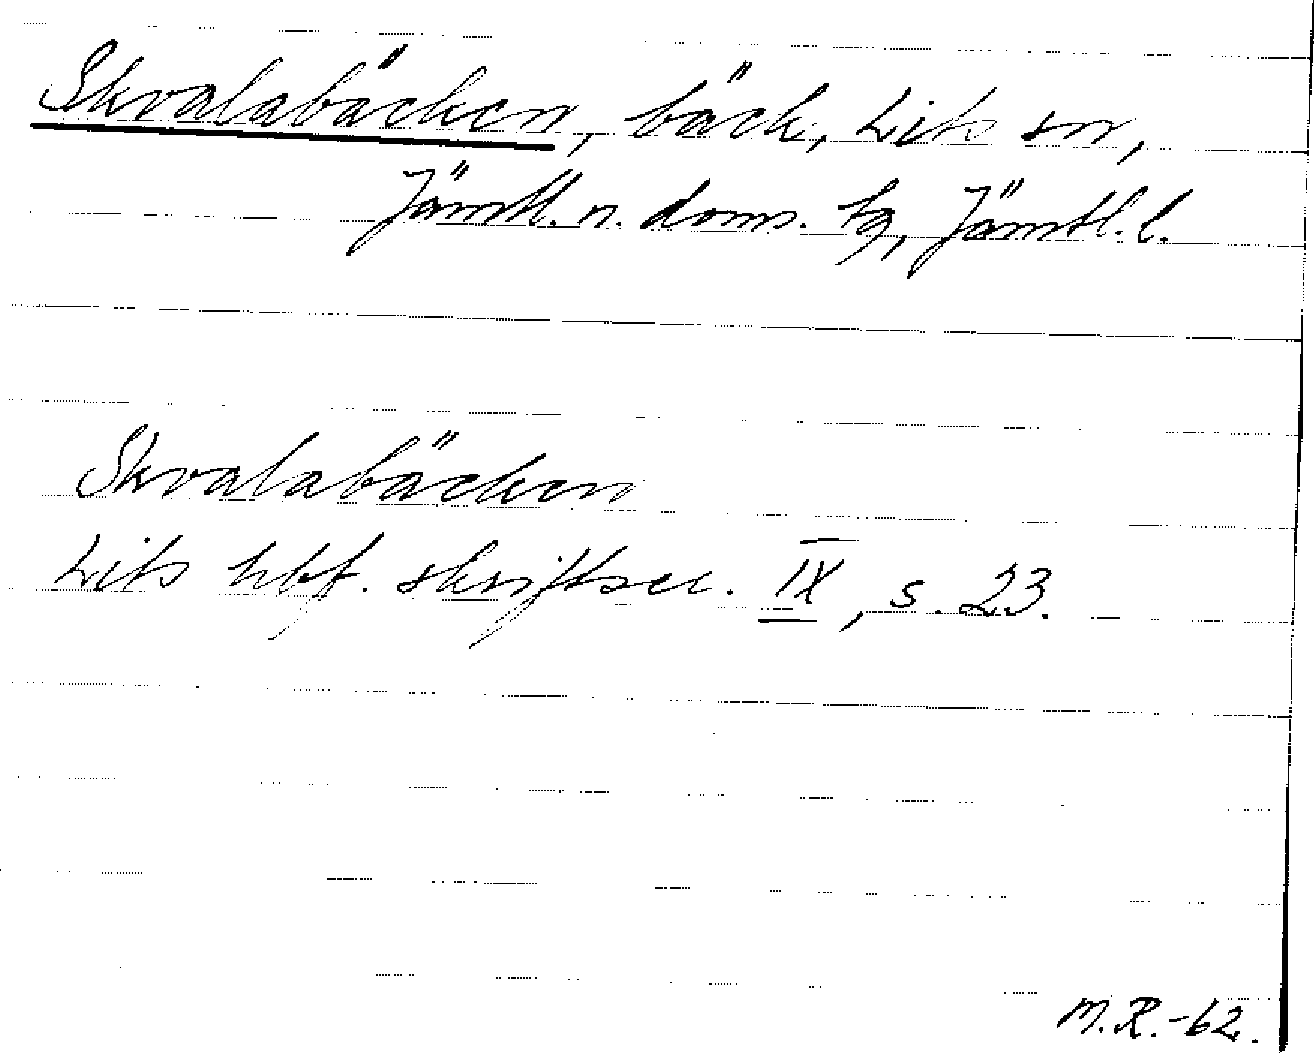 Skvalabäcken, bäck, Lits sn,
Jämtl. n. doms. tg, Jämtl. l.
Skvalabäcken
Lits hbf. skriftser. IX, s. 23.
M.R.-62.